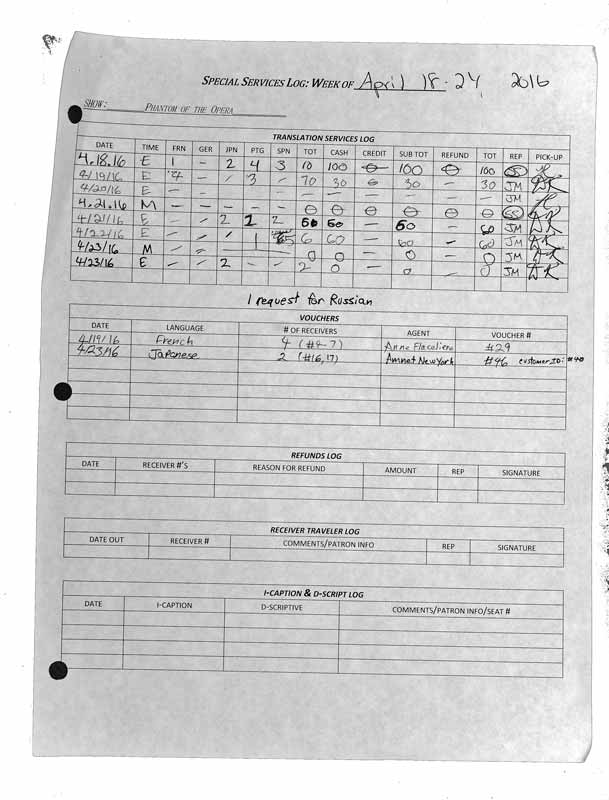 SPECIAL SERVICES LOG: WEEK OF April 18-24 2016
SHOW: PHANTOM OF THE OPERA
TRANSLATION SERVICES LOG
DATE TIME FRN GER JPN PTG SPN TOT CASH CREDIT SUB TOT REFUND TOT REP PICK-UP
4.18.16 E 1 - 2 4 3 10 100 0 100 0 100 GS
4/19/16 E 4 - / 3 - 30 - 30 - 30 JM
4/20/16 E - - - - - - - - - - JM
4.21.16 M - - - - - 0 0 0 0 0 0 GS
4/21/16 E - - 2 1 2 60 - 60 60 JM
4/22/16 E - / / - - - - - JM
4/23/16 M - - - 1 5 6 60 - 60 - 60 JM
4/23/16 E - - 2 - - 2 0 - 0 - 0 JM
1 request for Russian
VOUCHERS
DATE LANGUAGE # OF RECEIVERS AGENT VOUCHER #
4/19/16 French 4 (#4-7) Anne #29
4/23/16 Japanese 2 (#16,17) Amnet New York #46 customer ID: #40
REFUNDS LOG
DATE RECEIVER #'S REASON FOR REFUND AMOUNT REP SIGNATURE
RECEIVER TRAVELER LOG
DATE OUT RECEIVER # COMMENTS/PATRON INFO REP SIGNATURE
I-CAPTION & D-SCRIPT LOG
DATE I-CAPTION D-SCRIPTIVE COMMENTS/PATRON INFO/SEAT #